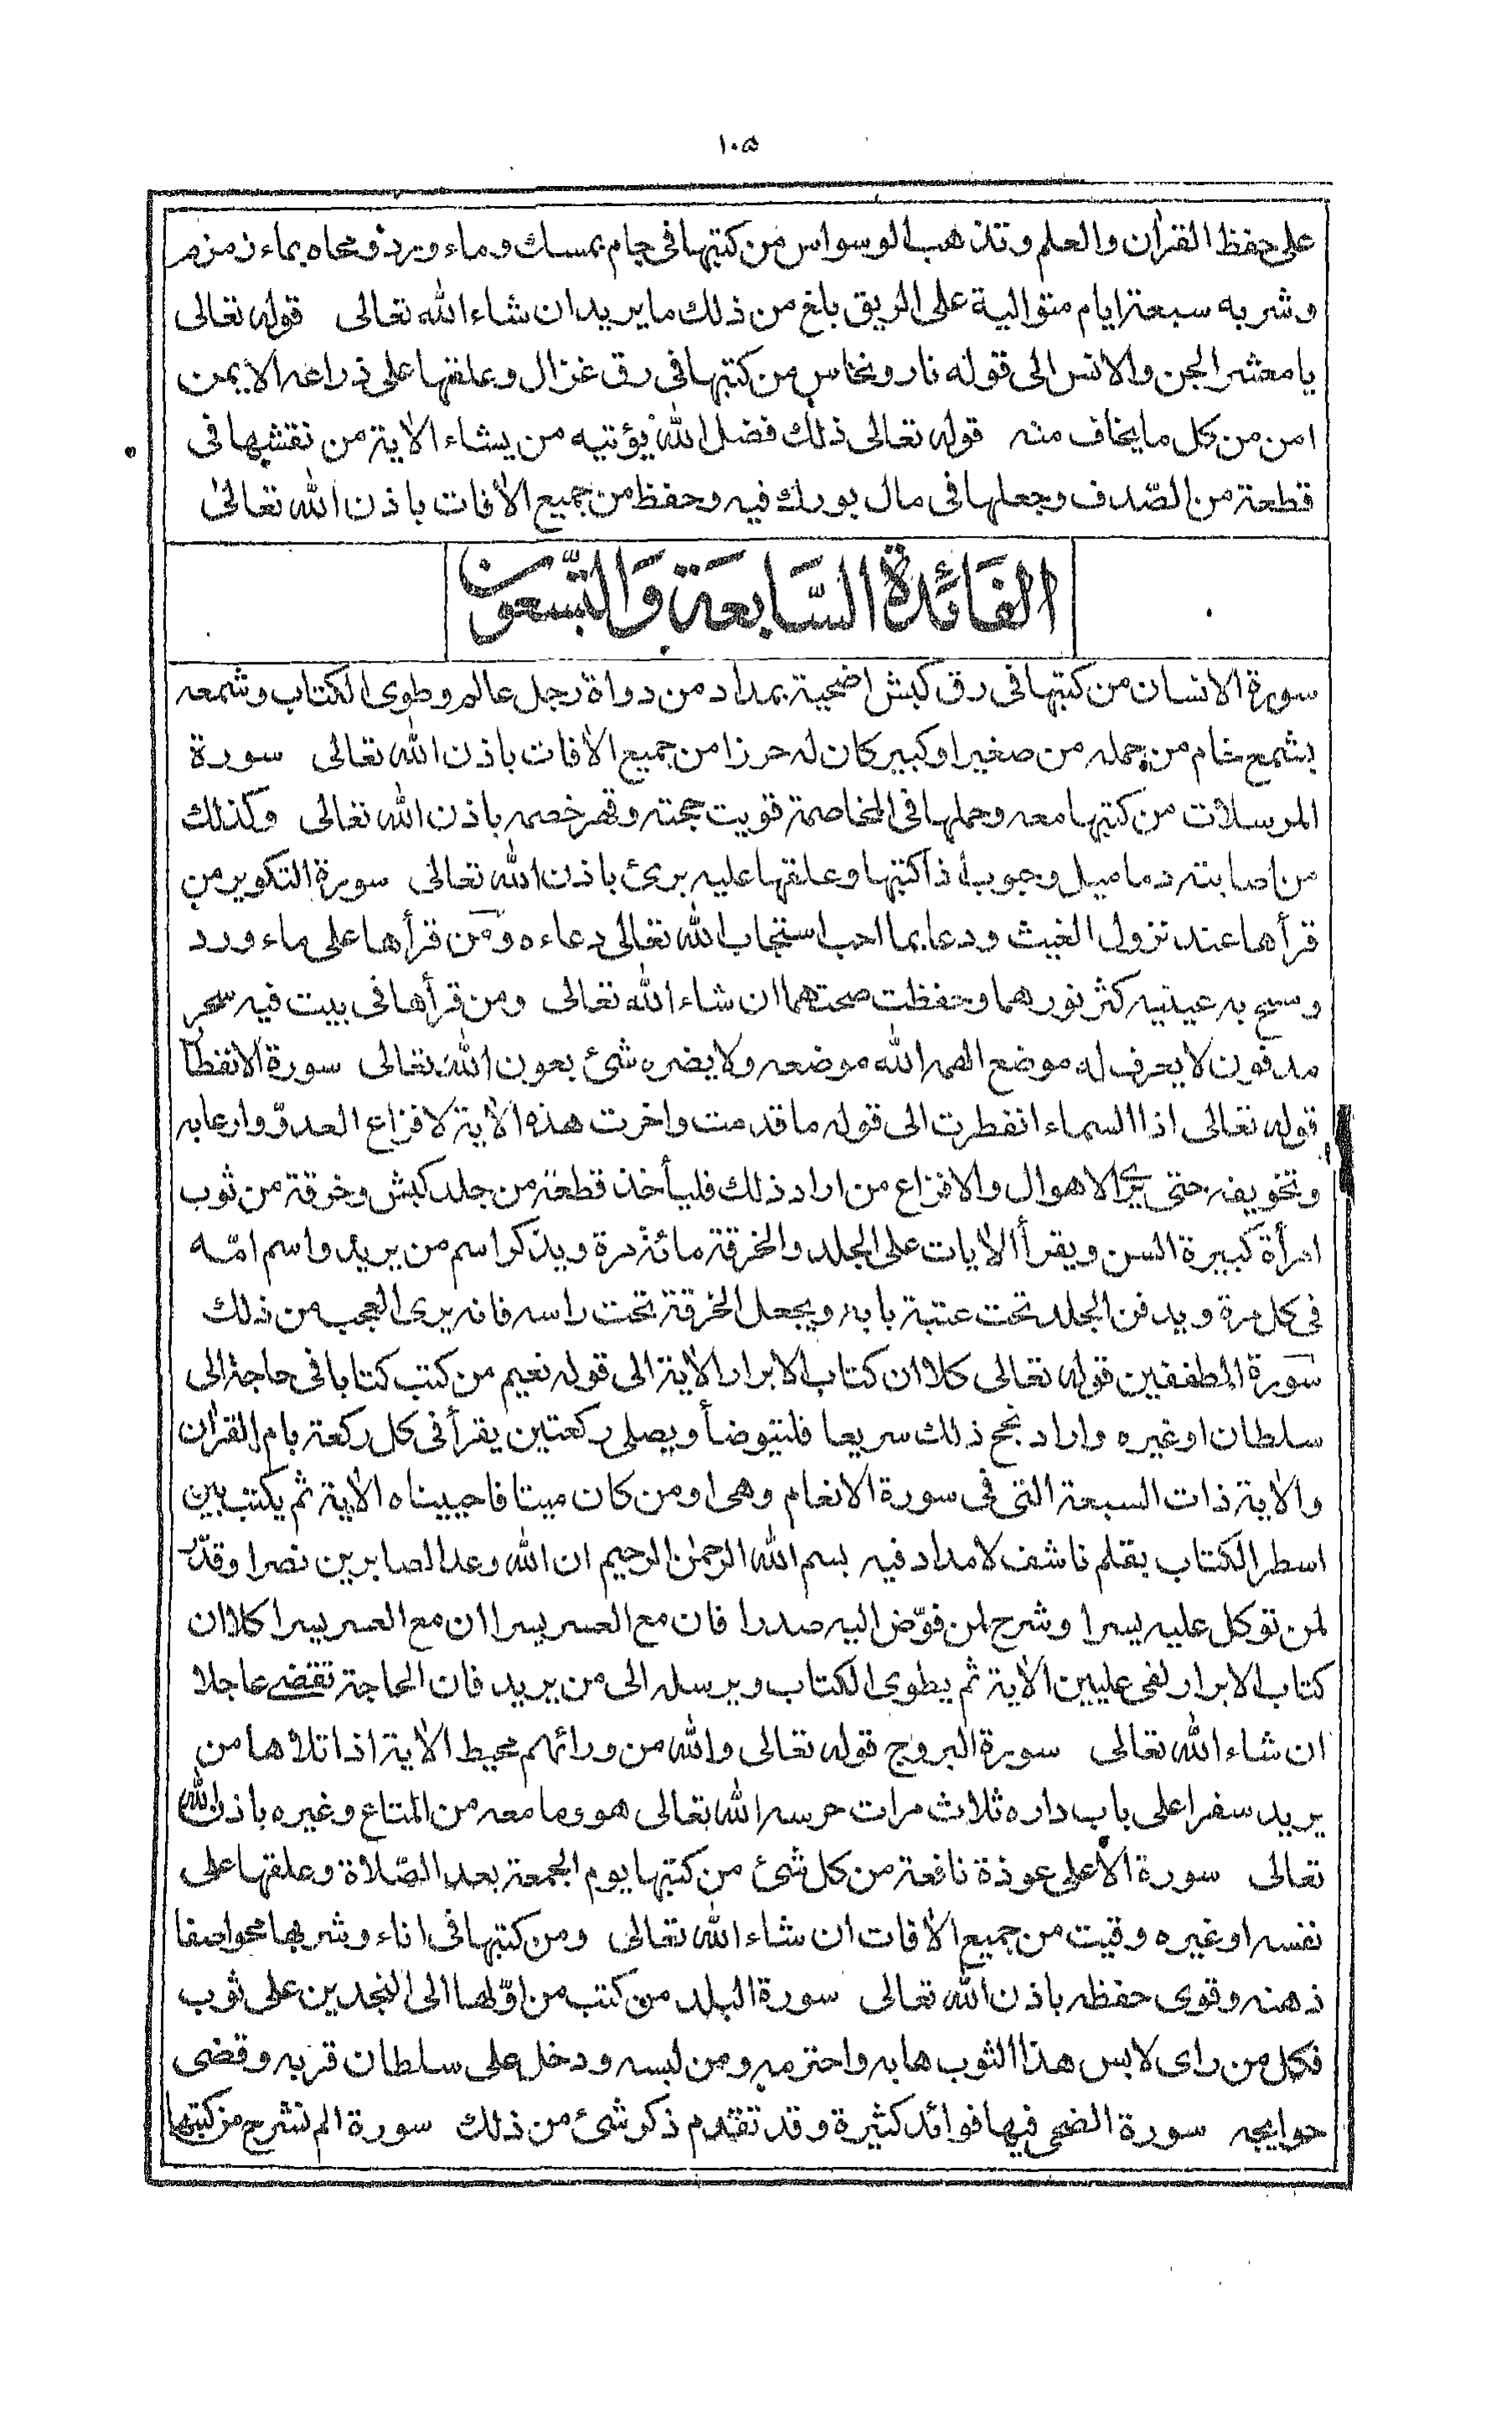 ١٠٥
على حفظ القرآن والعلم وتذهب الوسواس من كتبها فى جام بمسك وماء ورد ومحاه بماء زمزم
وشربه سبعة ايام متوالية على الريق بلغ من ذلك ما يريد ان شاء الله تعالى قوله تعالى
يا معشر الجن والانس الى قوله نار ونحاس من كتبها فى رق غزال وعلقها على ذراعه الايمن
امن من كل ما يخاف منه قوله تعالى ذلك فضل الله يؤتيه من يشاء الاٰية من نقشها فى
قطعة من الصّدف وجعلها فى مال بورك فيه وحفظ من جميع الاٰفات باذن الله تعالىٰ
الفَائدة السَّابعَة وَالتّسعون
سورة الانسان من كتبها فى رق كبش اضحية بمداد من دواة رجل عالم وطوى الكتاب وشمعه
بشمع خام من حمله من صغير او كبير كان له حرزا من جميع الاٰفات باذن الله تعالى سورة
المرسلات من كتبها معه وحملها فى المخاصمة قويت حجته وقهر خصمه باذن الله تعالى وكذلك
من اصابته دماميل وجوب اذا كتبها وعلقها عليه برئ باذن الله تعالى سورة التكوير من
قرأها عند نزول الغيث ودعا بما احب استجاب الله تعالى دعاءه ومن قرأها على ماء ورد
ومسح به عينيه كثر نورهما وحفظت صحتهما ان شاء الله تعالى ومن قرأها فى بيت فيه سحر
مدفون لا يعرف له موضع الهمه الله موضعه ولا يضره شئ بعون الله تعالى سورة الانفطا
قوله تعالى اذا السماء انفطرت الى قوله ما قدمت واخرت هذه الاٰية لافزاع العدوّ وارعابه
وتخويفه حتى يرى الاهوال والافزاع من اراد ذلك فليأخذ قطعة من جلد كبش وخرقة من ثوب
امرأة كبيرة السن ويقرأ الاٰيات على الجلد والخرقة مائة مرة ويذكر اسم من يريد واسم امّه
فى كل مرة ويدفن الجلد تحت عتبة بابه ويجعل الخرقة تحت راسه فانه يرى العجب من ذلك
سورة المطففين قوله تعالى كلا ان كتاب الابرار الاٰية الى قوله نعيم من كتب كتابا فى حاجة الى
سلطان او غيره واراد نجح ذلك سريعا فليتوضأ ويصلى ركعتين يقرأ فى كل ركعة بام القرآن
والاٰية ذات السبعة التى فى سورة الانعام وهى او من كان ميتا فاحييناه الاٰية ثم يكتب بين
اسطر الكتاب بقلم ناشف لا مداد فيه بسم الله الرحمٰن الرحيم ان الله وعد الصابرين نصرا وقدّر
لمن توكل عليه يسرا وشرح لمن فوّض اليه صدرا فان مع العسر يسرا ان مع العسر يسرا كلا ان
كتاب الابرار لفى عليين الاٰية ثم يطوى الكتاب ويرسله الى من يريد فان الحاجة تقضى عاجلا
ان شاء الله تعالى سورة البروج قوله تعالى والله من ورائهم محيط الاٰية اذا تلاها من
يريد سفرا على باب داره ثلاث مرات حرسه الله تعالى هو وما معه من المتاع وغيره باذن الله
تعالى سورة الأعلى عوذة نافعة من كل شئ من كتبها يوم الجمعة بعد الصّلاة وعلقها على
نفسه او غيره وقيت من جميع الاٰفات ان شاء الله تعالى ومن كتبها فى اناء وشربها محوا صفا
ذهنه وقوى حفظه باذن الله تعالى سورة البلد من كتب من اوّلها الى النجدين على ثوب
فكل من راى لابس هذا الثوب هابه واحترمه ومن لبسه ودخل على سلطان قربه وقضى
حوايجه سورة الضحى فيها فوائد كثيرة وقد تقدم ذكر شئ من ذلك سورة الم نشرح من كتبها